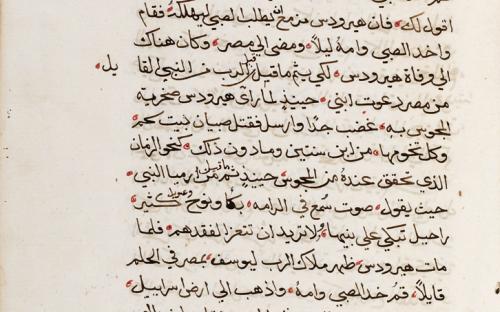 اقول لك فان هيرودس مزمع ان يطلب الصبي ليهلكه فقام
واخد الصبي وامه ليلاً ومضي الي مصر وكان هناك
الي وفاة هيرودس لكي يتم ما قيل من قبل الرب في النبي القايل
من مصر دعوت ابني حينيذٍ لما راى هيرودس سخرية
المجوس به غضب جدًا وارسل فقتل صبيان بيت لحم
وكل تخومها من ابن سنتين وما دون ذلك كنحو الزمان
الذي تحقق عنده من المجوس حينيذٍ تم ما قيل من ارميا النبي
حيث يقول صوت سمع في الرامه بكا ونوح وعويل كثير
راحيل تبكي علي بنيها ولا تريد ان تتعزا لفقدهم فلما
مات هيرودس ظهر ملاك الرب ليوسف بمصر في الحلم
قايلاً قم خد الصبي وامه واذهب الي ارض اسراييل